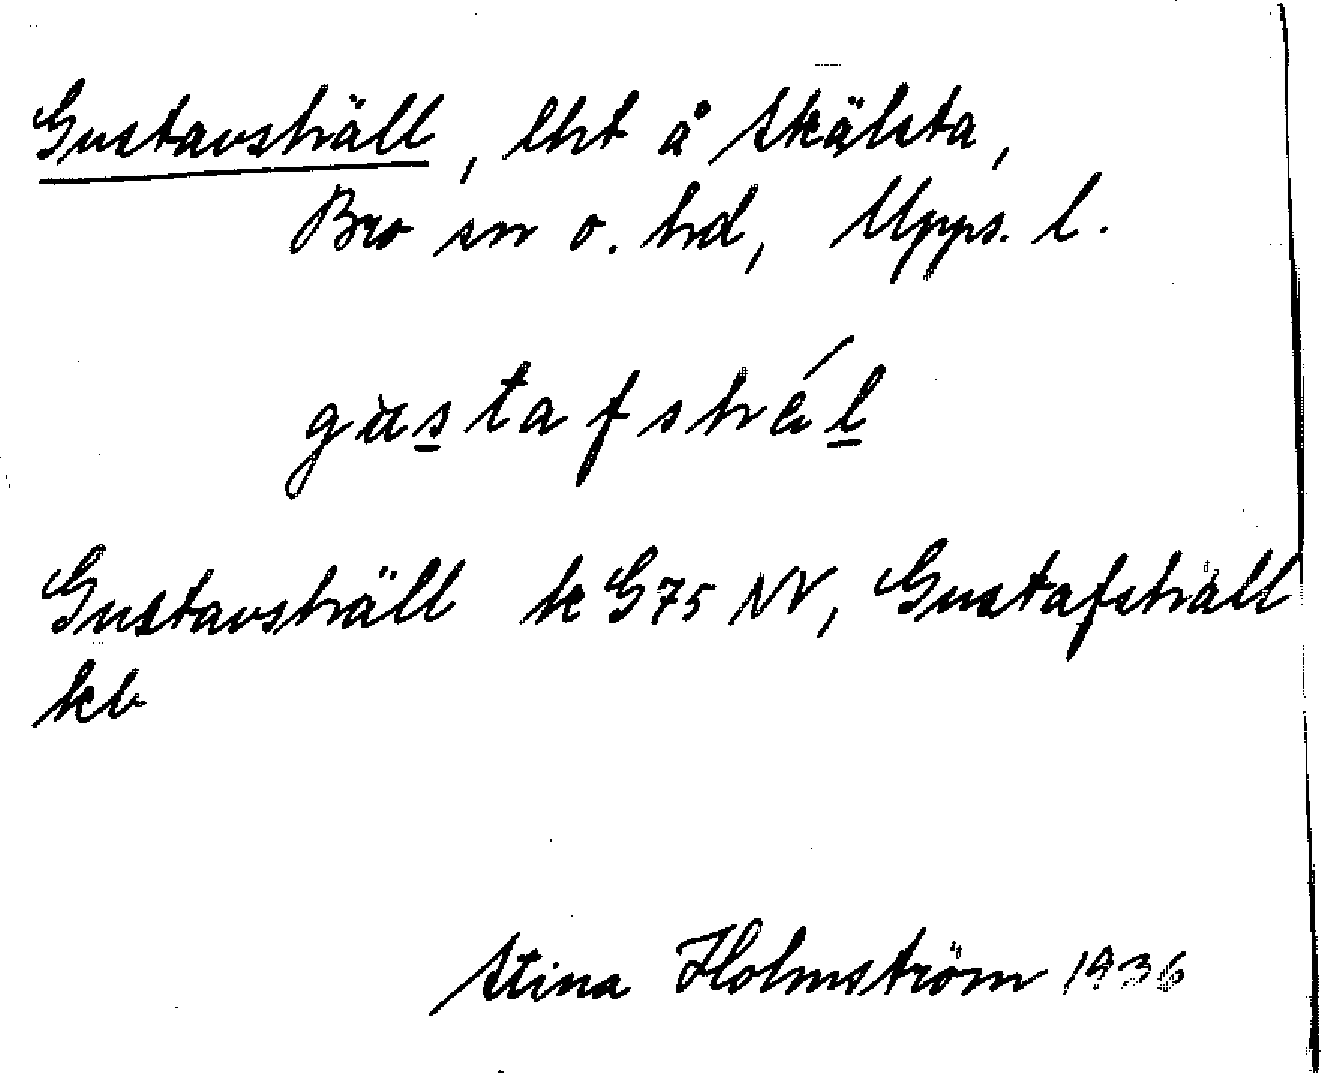 Gustavshäll, lht å Skälsta,
Bro sn o. hd, Upps. l.
gùstafshä́l
Gustavshäll k G75 NV, Gustafshäll
kb
Stina Holmström 1936